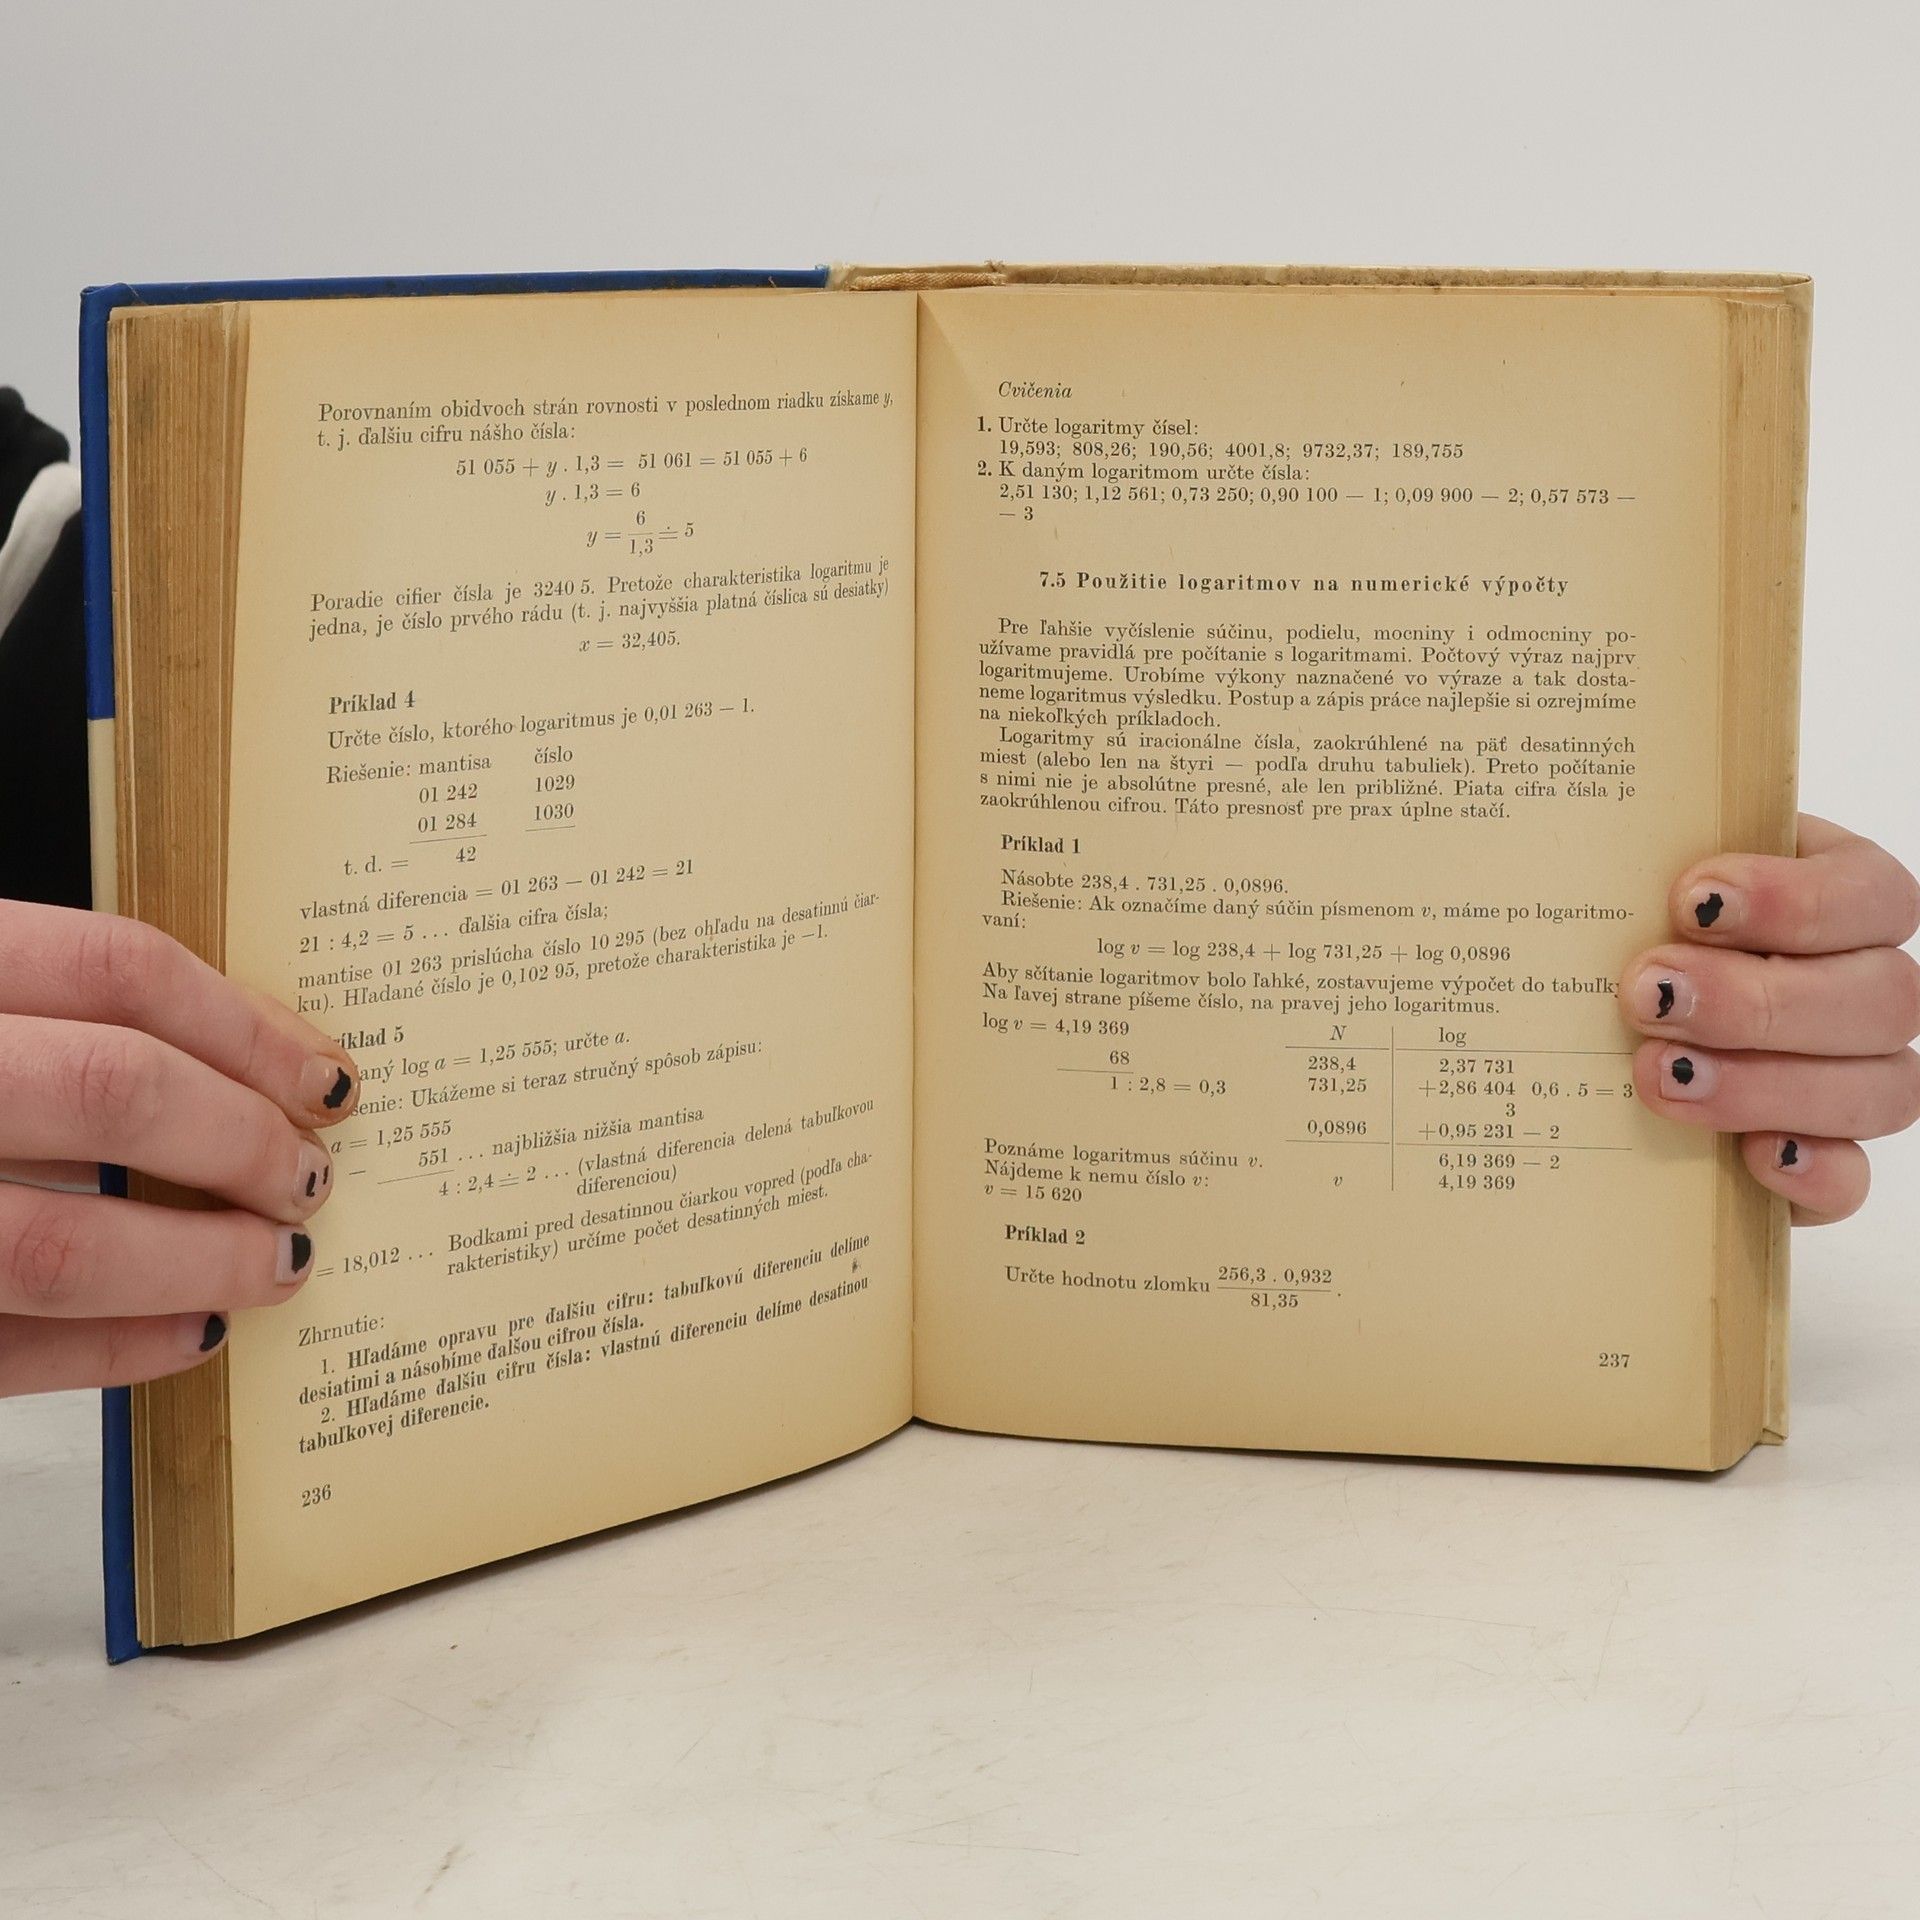 Porovnaním obidvoch strán rovnosti v poslednom riadku získame y,
t. j. ďalšiu cifru nášho čísla:
51 055 + y . 1,3 = 51 061 = 51 055 + 6
y . 1,3 = 6
y = 6/1,3 ≐ 5
Poradie cifier čísla je 3240 5. Pretože charakteristika logaritmu je
jedna, je číslo prvého rádu (t. j. najvyššia platná číslica sú desiatky)
x = 32,405.
Príklad 4
Určte číslo, ktorého logaritmus je 0,01 263 — 1.
Riešenie: mantisa číslo
01 242 1029
01 284 1030
t. d. = 42
vlastná diferencia = 01 263 — 01 242 = 21
21 : 4,2 = 5 ... ďalšia cifra čísla;
mantise 01 263 prislúcha číslo 10 295 (bez ohľadu na desatinnú čiar-
ku). Hľadané číslo je 0,102 95, pretože charakteristika je —1.
íklad 5
aný log a = 1,25 555; určte a.
šenie: Ukážeme si teraz stručný spôsob zápisu:
a = 1,25 555
— 551 ... najbližšia nižšia mantisa
4 : 2,4 ≐ 2 ... (vlastná diferencia delená tabuľkovou
diferenciou)
= 18,012 ... Bodkami pred desatinnou čiarkou vopred (podľa cha-
rakteristiky) určíme počet desatinných miest.
Zhrnutie:
1. Hľadáme opravu pre ďalšiu cifru: tabuľkovú diferenciu delíme
desiatimi a násobíme ďalšou cifrou čísla.
2. Hľadáme ďalšiu cifru čísla: vlastnú diferenciu delíme desatinou
tabuľkovej diferencie.
236
Cvičenia
1. Určte logaritmy čísel:
19,593; 808,26; 190,56; 4001,8; 9732,37; 189,755
2. K daným logaritmom určte čísla:
2,51 130; 1,12 561; 0,73 250; 0,90 100 — 1; 0,09 900 — 2; 0,57 573 —
— 3
7.5 Použitie logaritmov na numerické výpočty
Pre ľahšie vyčíslenie súčinu, podielu, mocniny i odmocniny po-
užívame pravidlá pre počítanie s logaritmami. Počtový výraz najprv
logaritmujeme. Urobíme výkony naznačené vo výraze a tak dosta-
neme logaritmus výsledku. Postup a zápis práce najlepšie si ozrejmíme
na niekoľkých príkladoch.
Logaritmy sú iracionálne čísla, zaokrúhlené na päť desatinných
miest (alebo len na štyri — podľa druhu tabuliek). Preto počítanie
s nimi nie je absolútne presné, ale len približné. Piata cifra čísla je
zaokrúhlenou cifrou. Táto presnosť pre prax úplne stačí.
Príklad 1
Násobte 238,4 . 731,25 . 0,0896.
Riešenie: Ak označíme daný súčin písmenom v, máme po logaritmo-
vaní:
log v = log 238,4 + log 731,25 + log 0,0896
Aby sčítanie logaritmov bolo ľahké, zostavujeme výpočet do tabuľky
Na ľavej strane píšeme číslo, na pravej jeho logaritmus.
log v = 4,19 369
68
1 : 2,8 = 0,3
Poznáme logaritmus súčinu v.
Nájdeme k nemu číslo v:
v = 15 620
N log
238,4 2,37 731
731,25 +2,86 404 0,6 . 5 = 3
3
0,0896 +0,95 231 — 2
6,19 369 — 2
v 4,19 369
Príklad 2
Určte hodnotu zlomku 256,3 . 0,932/81,35.
237